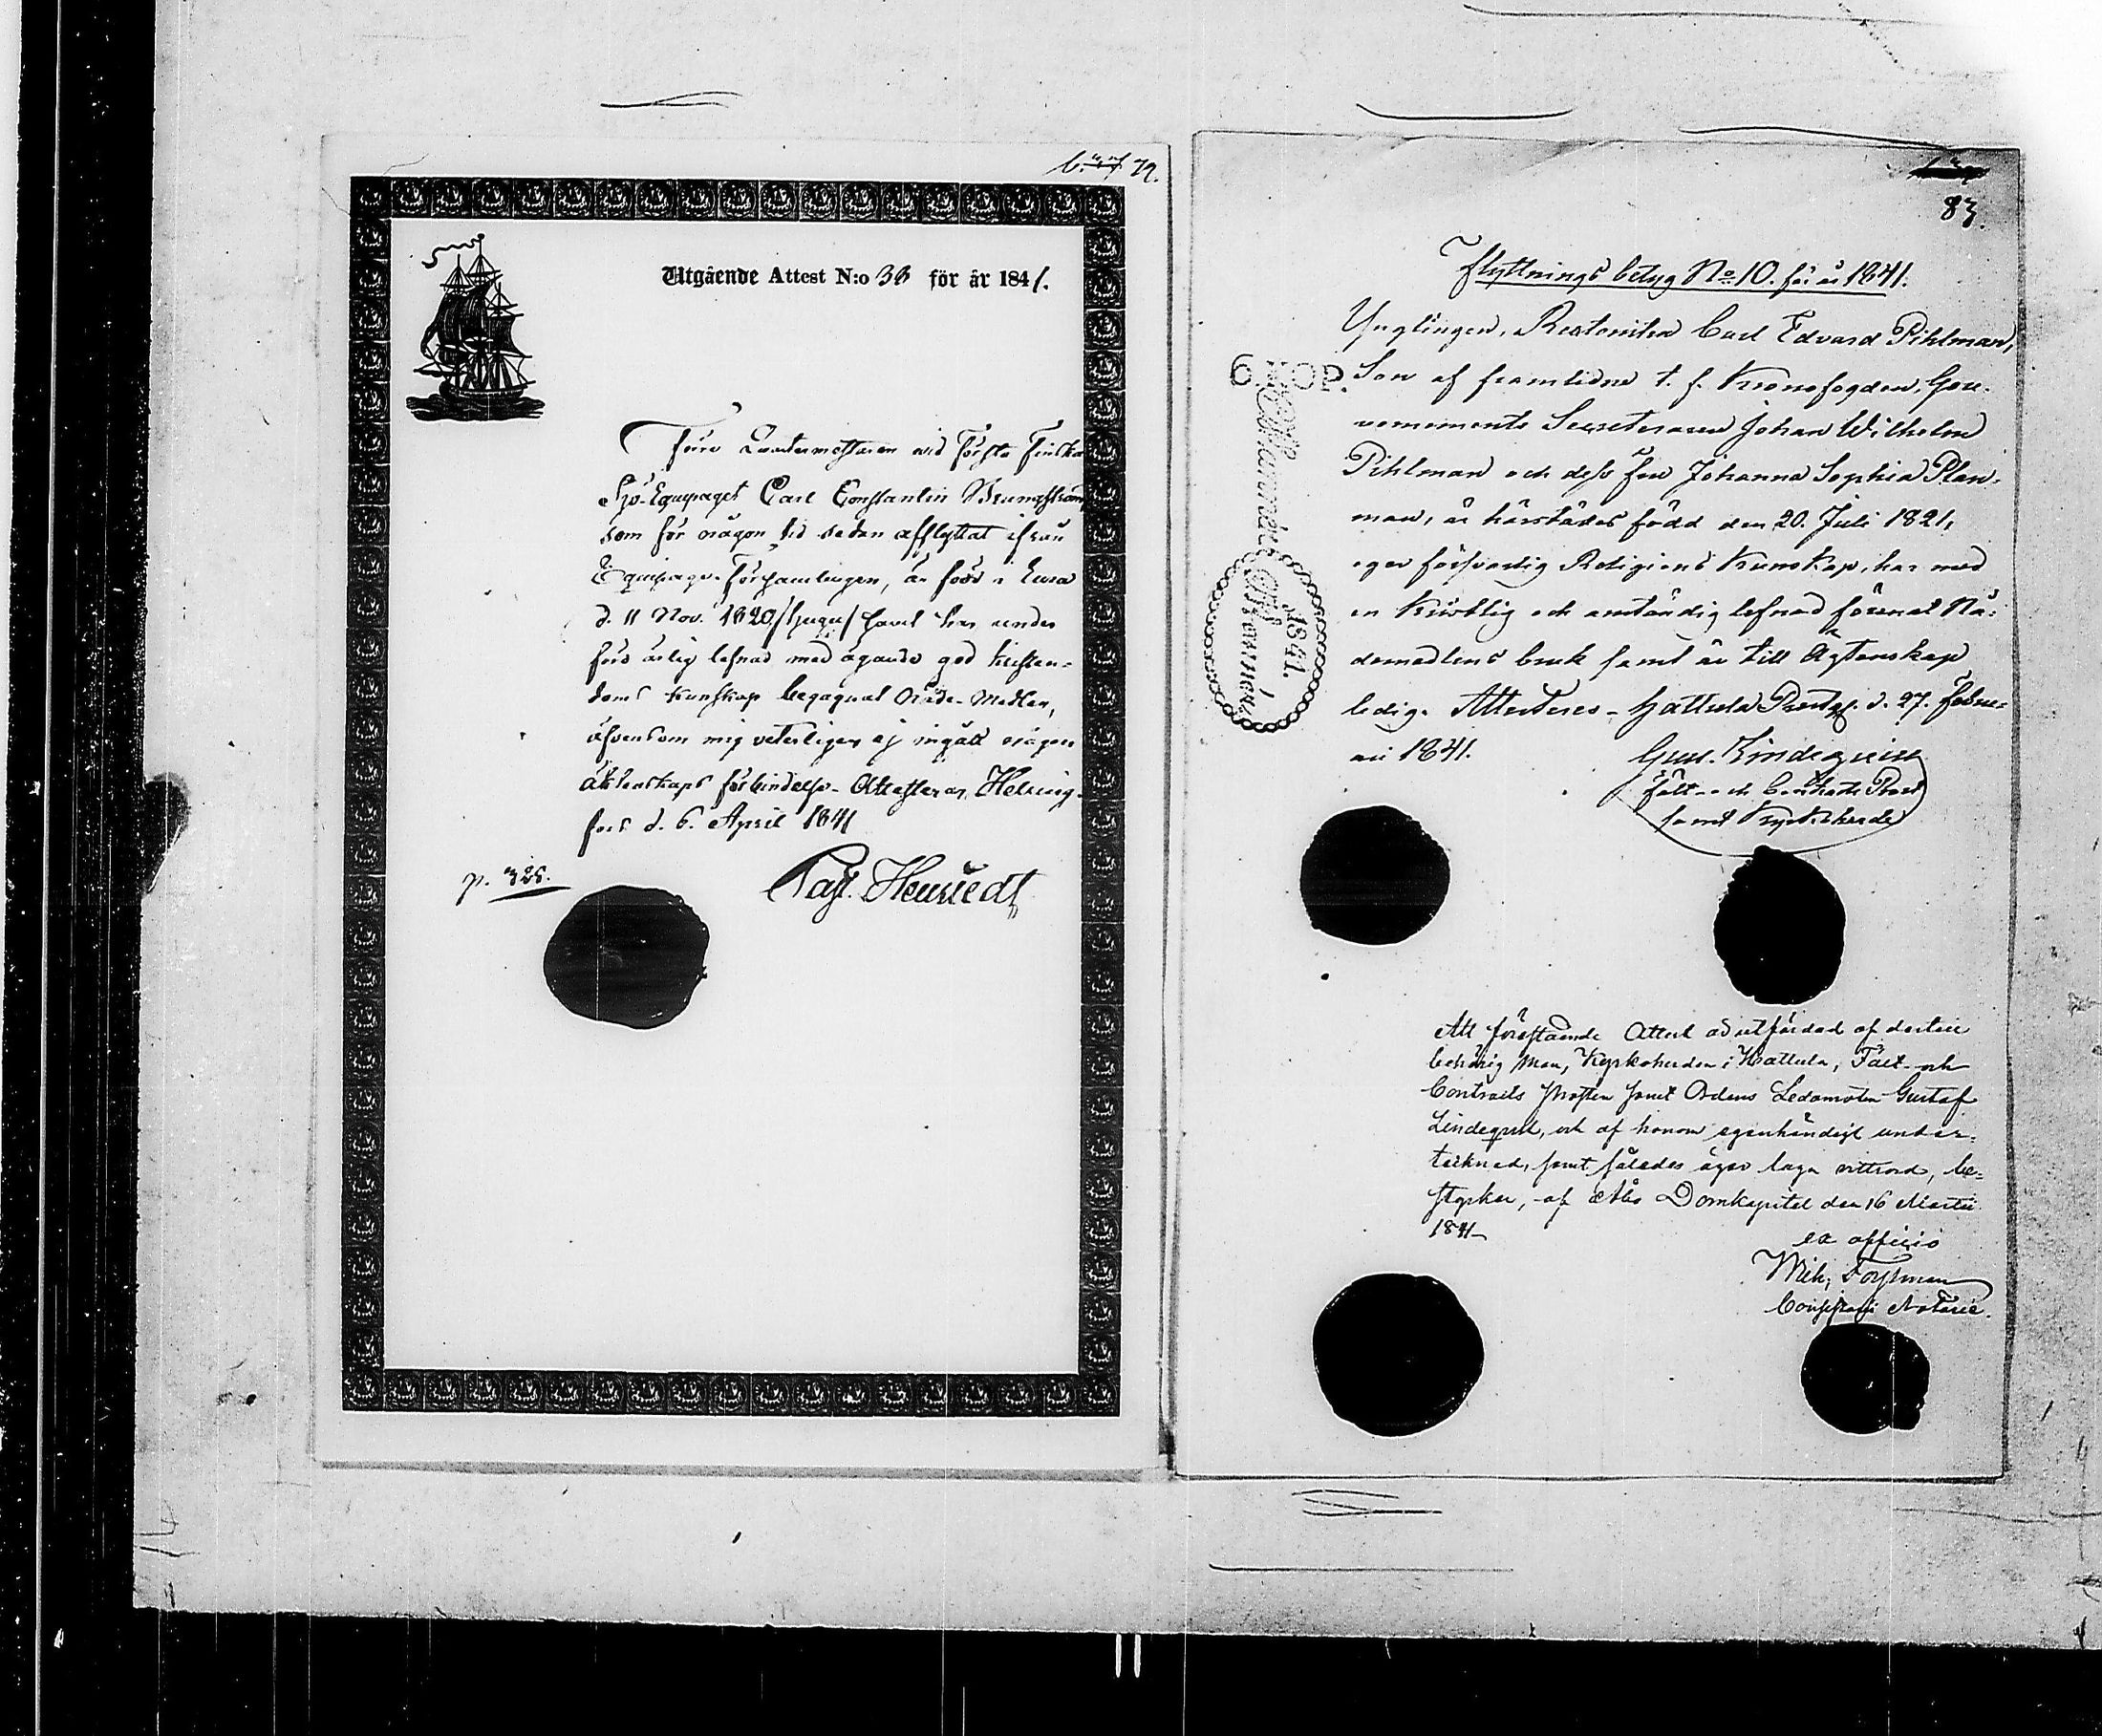 79.
Utgående Attest N:o 36 för år 1841.
Förre Quartermästaren vid Första Finska
Sjö-Equipaget Carl Constantin
som för någon tid sedan afflyttat ifrån
Equipage-Församlingen, är född i Eura
d. 11 Nov. 1820 samt har under
förd ärlig lefnad med ägande god kristen-
doms kunskap begagnat Nåde-Medlen,
äfvensom mig veterligen ej ingått någon
äktenskaps förbindelse. Attesteras, Helsing-
fors d. 6. April 1841
p. 328.
83.
Flyttnings betyg No 10. för år 1841.
Ynglingen, Carl Edvard Pihlman,
Son af framledne t. f. Kronofogden, Gou-
vernements Secreteraren Johan Wilhelm
Pihlman och dess fru Johanna Sophia Plan-
man, är härstädes född den 20. Juli 1821,
eger försvarlig Religions Kunskap, har med
en Kristlig och anständig lefnad förenat Nå-
demedlens bruk samt är till Ägtenskap
ledig. Attesteres - Hattula Prestg. d. 27. Febru-
arii 1841.
Gust. Lindequist
Fält- och Contracts Prost
samt Kyrkoherde
6 KOP.
1841.
Att föreståënde Attest är utfärdad af dertill
behörig Man, Kyrkoherden i Hattula, Fält- och
Contracts Prosten samt Ordens Ledamoten Gustaf
Lindequist, och af honom egenhändigt under-
tecknad, samt således äger laga vittsord, be-
styrker, af Åbo Domkapitel den 16 Martii
1841-
ex officio
Consistorii Notarie.